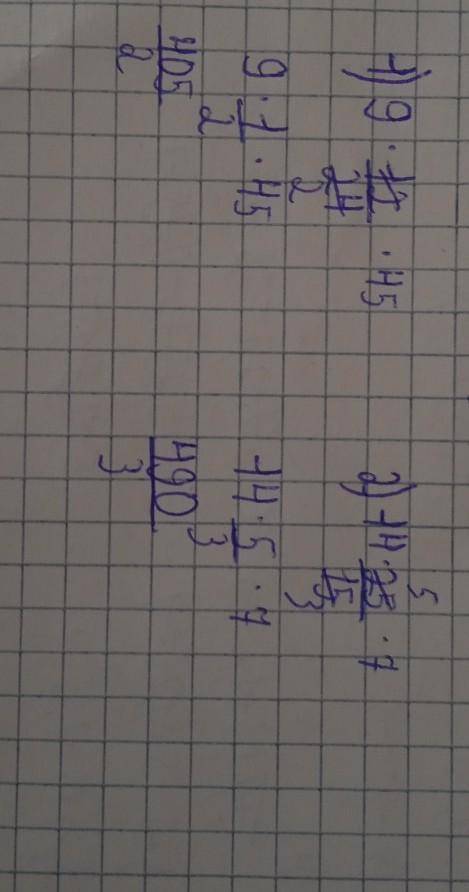 1) 9 · 12/24 2 · 45
9 · 1/2 · 45
405/2
2) 14 · 25/15 5 3 · 7
14 · 5/3 · 7
490/3